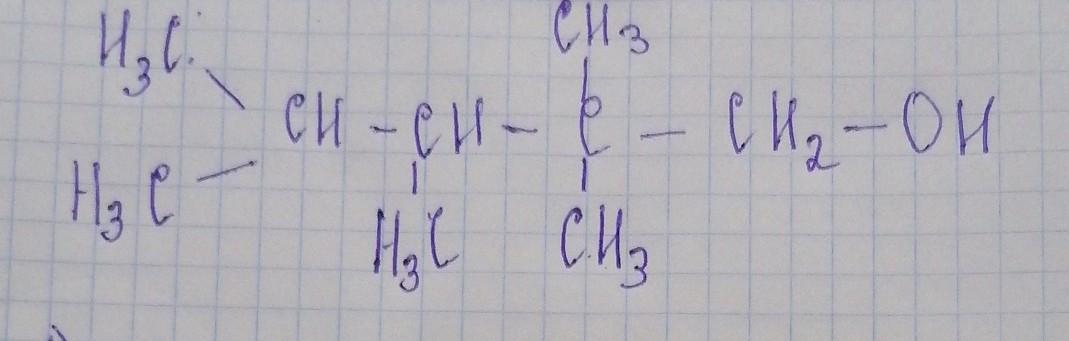 CH3
H3C
CH - CH - C - CH2 - OH
H3C
H3C CH3